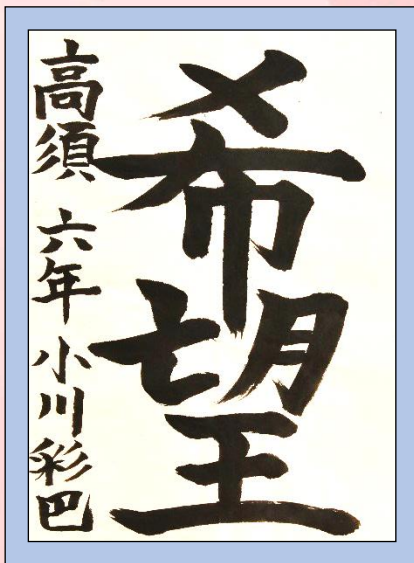 希望
高須 六年 小川彩巴